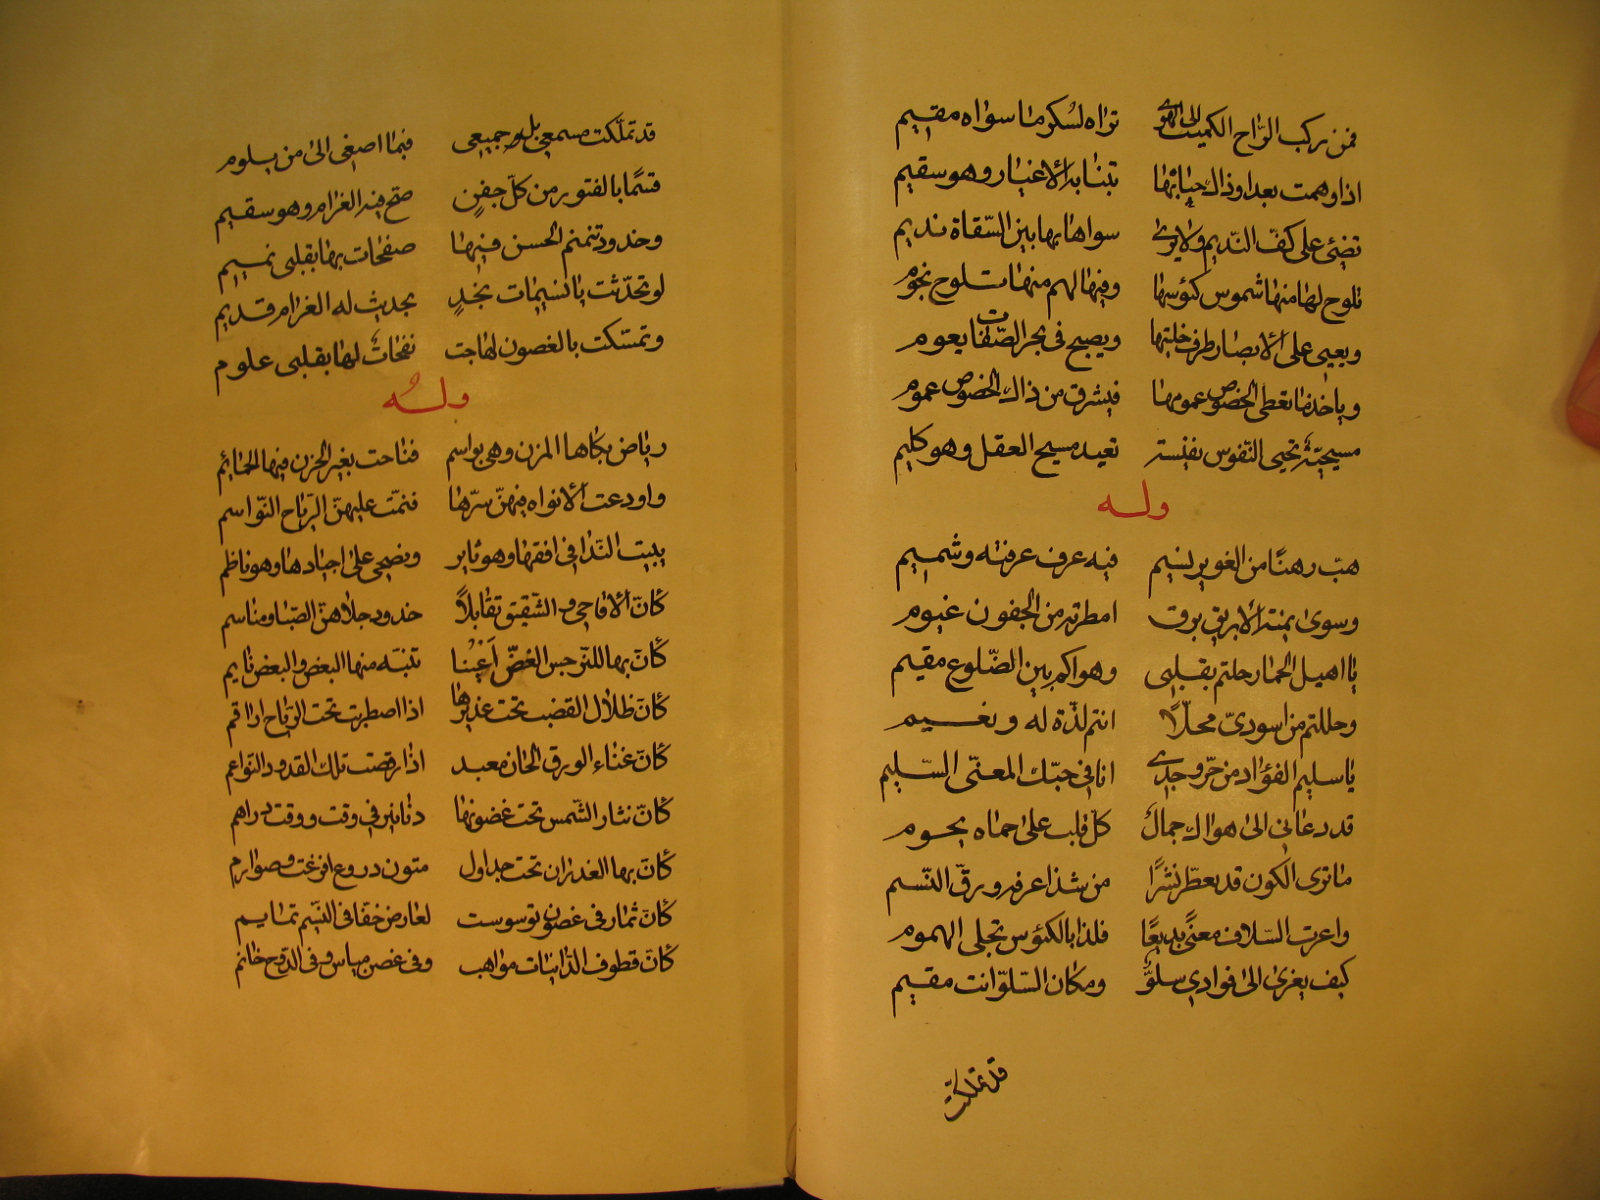 فمن يركب الراح الكميت الى الهوى تراه لسكر ما سواه مقيم
اذا وهمت بعدا وذاك حبابها تبنا به الاغيار وهو سقيم
تضئ على كف النديم ولا يرى سواها بها بين السقاة نديم
تلوح لها منها شموس كئوسها وفيها لهم منها تلوح نجوم
ويعيى على الابصار طرف ويصبح في بحر الصفات يعوم
وياخذ ما تعطى الخصوص عمومها فيشرق من ذاك الخصوص عموم
مسيحيّة تحيى النّفوس نفيسة تعيد مسيح العقل وهو كليم
وله
هبّ رهنًا من الغوير نسيم فيه عرف عرفته وشميم
وسوى يمنة الابريق برق امطرته من الجفون غيوم
يا اهيل الحما رحلتم بقلبى وهواكم بين الضّلوع مقيم
وحللتم من اسودىّ محلّاً انتم لذّة له ونعيم
يا سليم الفؤاد من حرّ وجدى انا في حبّك المعنّى السّليم
قد دعانى الى هواك جمال كلّ قلب على حماه يحوم
ما ترى الكون قد تعطّر نشرًا من شذا عرفه ورقّ النّسيم
واعرت السّلاف معنًى بديعًا فلذا بالكئوس تجلى الهموم
كيف يغرى الى فوادى سلوٌّ ومكان السّلوّ انت مقيم
قد تملكت
قد تملّكت مسمعى بل جميعى فبما اصغى الى من يلوم
قسمًا بالفتور من كلّ جفنٍ صحّ فيه الغرام وهو سقيم
وخدود تنمنم الحسن فيها صفحات بها بقلبى نميم
لو تحدّثت يا نسيمات نجدٍ بحديث له الغرام قديم
وتمسّكت بالغصون لهاجت نفحاتٌ لها بقلبى علوم
وله
رياض بكاها المزن وهى بواسم فناحت بغير الحزن فيها الحمائم
واودعت الانواء فيهنّ سرّها فنمّت عليهنّ الرّياح النّواسم
يبيت النّدا في افقها وهو ناثر ويضحى على اجيادها وهو ناظم
كانّ الاقاحى والشّقيق تقابلاً خدود جلاهنّ الصّبا ومباسم
كانّ بها للنرجس الغضّ اَعْيُنا تنبّه منها البعض والبعض نايم
كانّ ظلال القضب تحت غديرها اذا اضطربت تحت الرّياح اراقم
كانّ غناء الورق الحان معبد اذا رقصت تلك القدود النّواعم
كانّ نثار الشّمس تحت غصونها دنانير في وقت ووقت دراهم
كانّ بها الغدران تحت جداول متون دروع افرغت وصوارم
كانّ ثمار في غصون توسوست لعارض خفّاق النّسيم تمايم
كانّ قطوف الدّانيات مواهب وفى غصن ميّاس وفى الدّوح خاتم